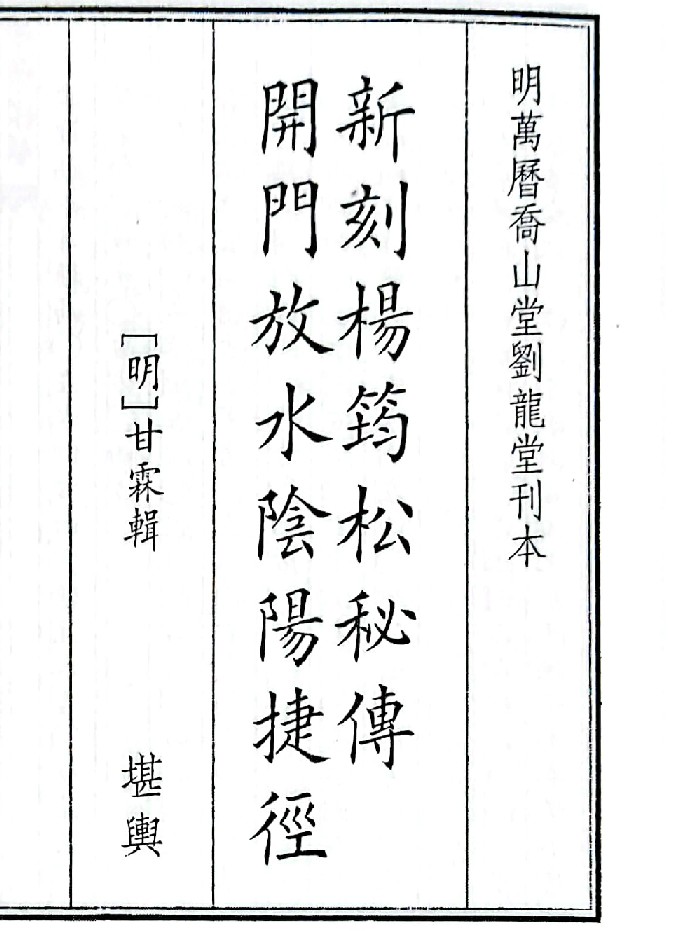 明萬曆喬山堂劉龍堂刊本
新刻楊筠松秘傳
開門放水陰陽捷徑
［明］甘霖輯
堪輿